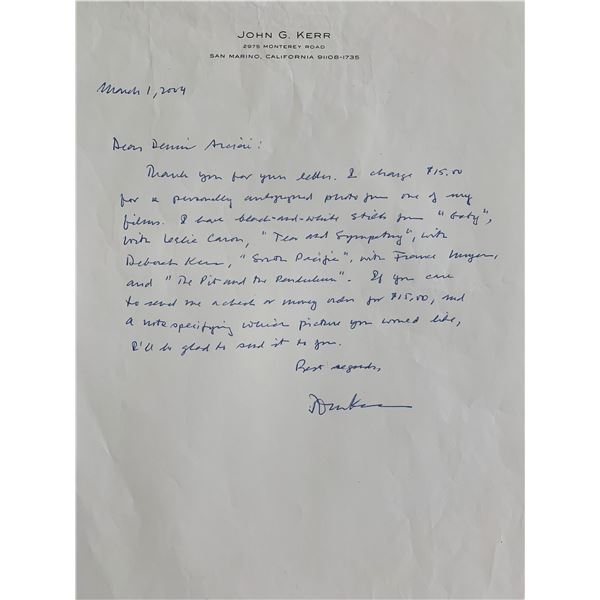 JOHN G. KERR
2975 MONTEREY ROAD
SAN MARINO, CALIFORNIA 91108-1735
March 1, 2004
Dear Dennis
Thank you for your letter. I charge $15.00
for a personally autographed photo from one of my
films. I have black-and-white stills from "Gaby",
with Leslie Caron, "Tea and Sympathy", with
Deborah Kerr, "South Pacific", with France Nuyen,
and "The Pit and the Pendulum". If you care
to send me a check or money order for $15.00, and
a note specifying which picture you would like,
I'll be glad to send it to you.
Best regards,
John Kerr